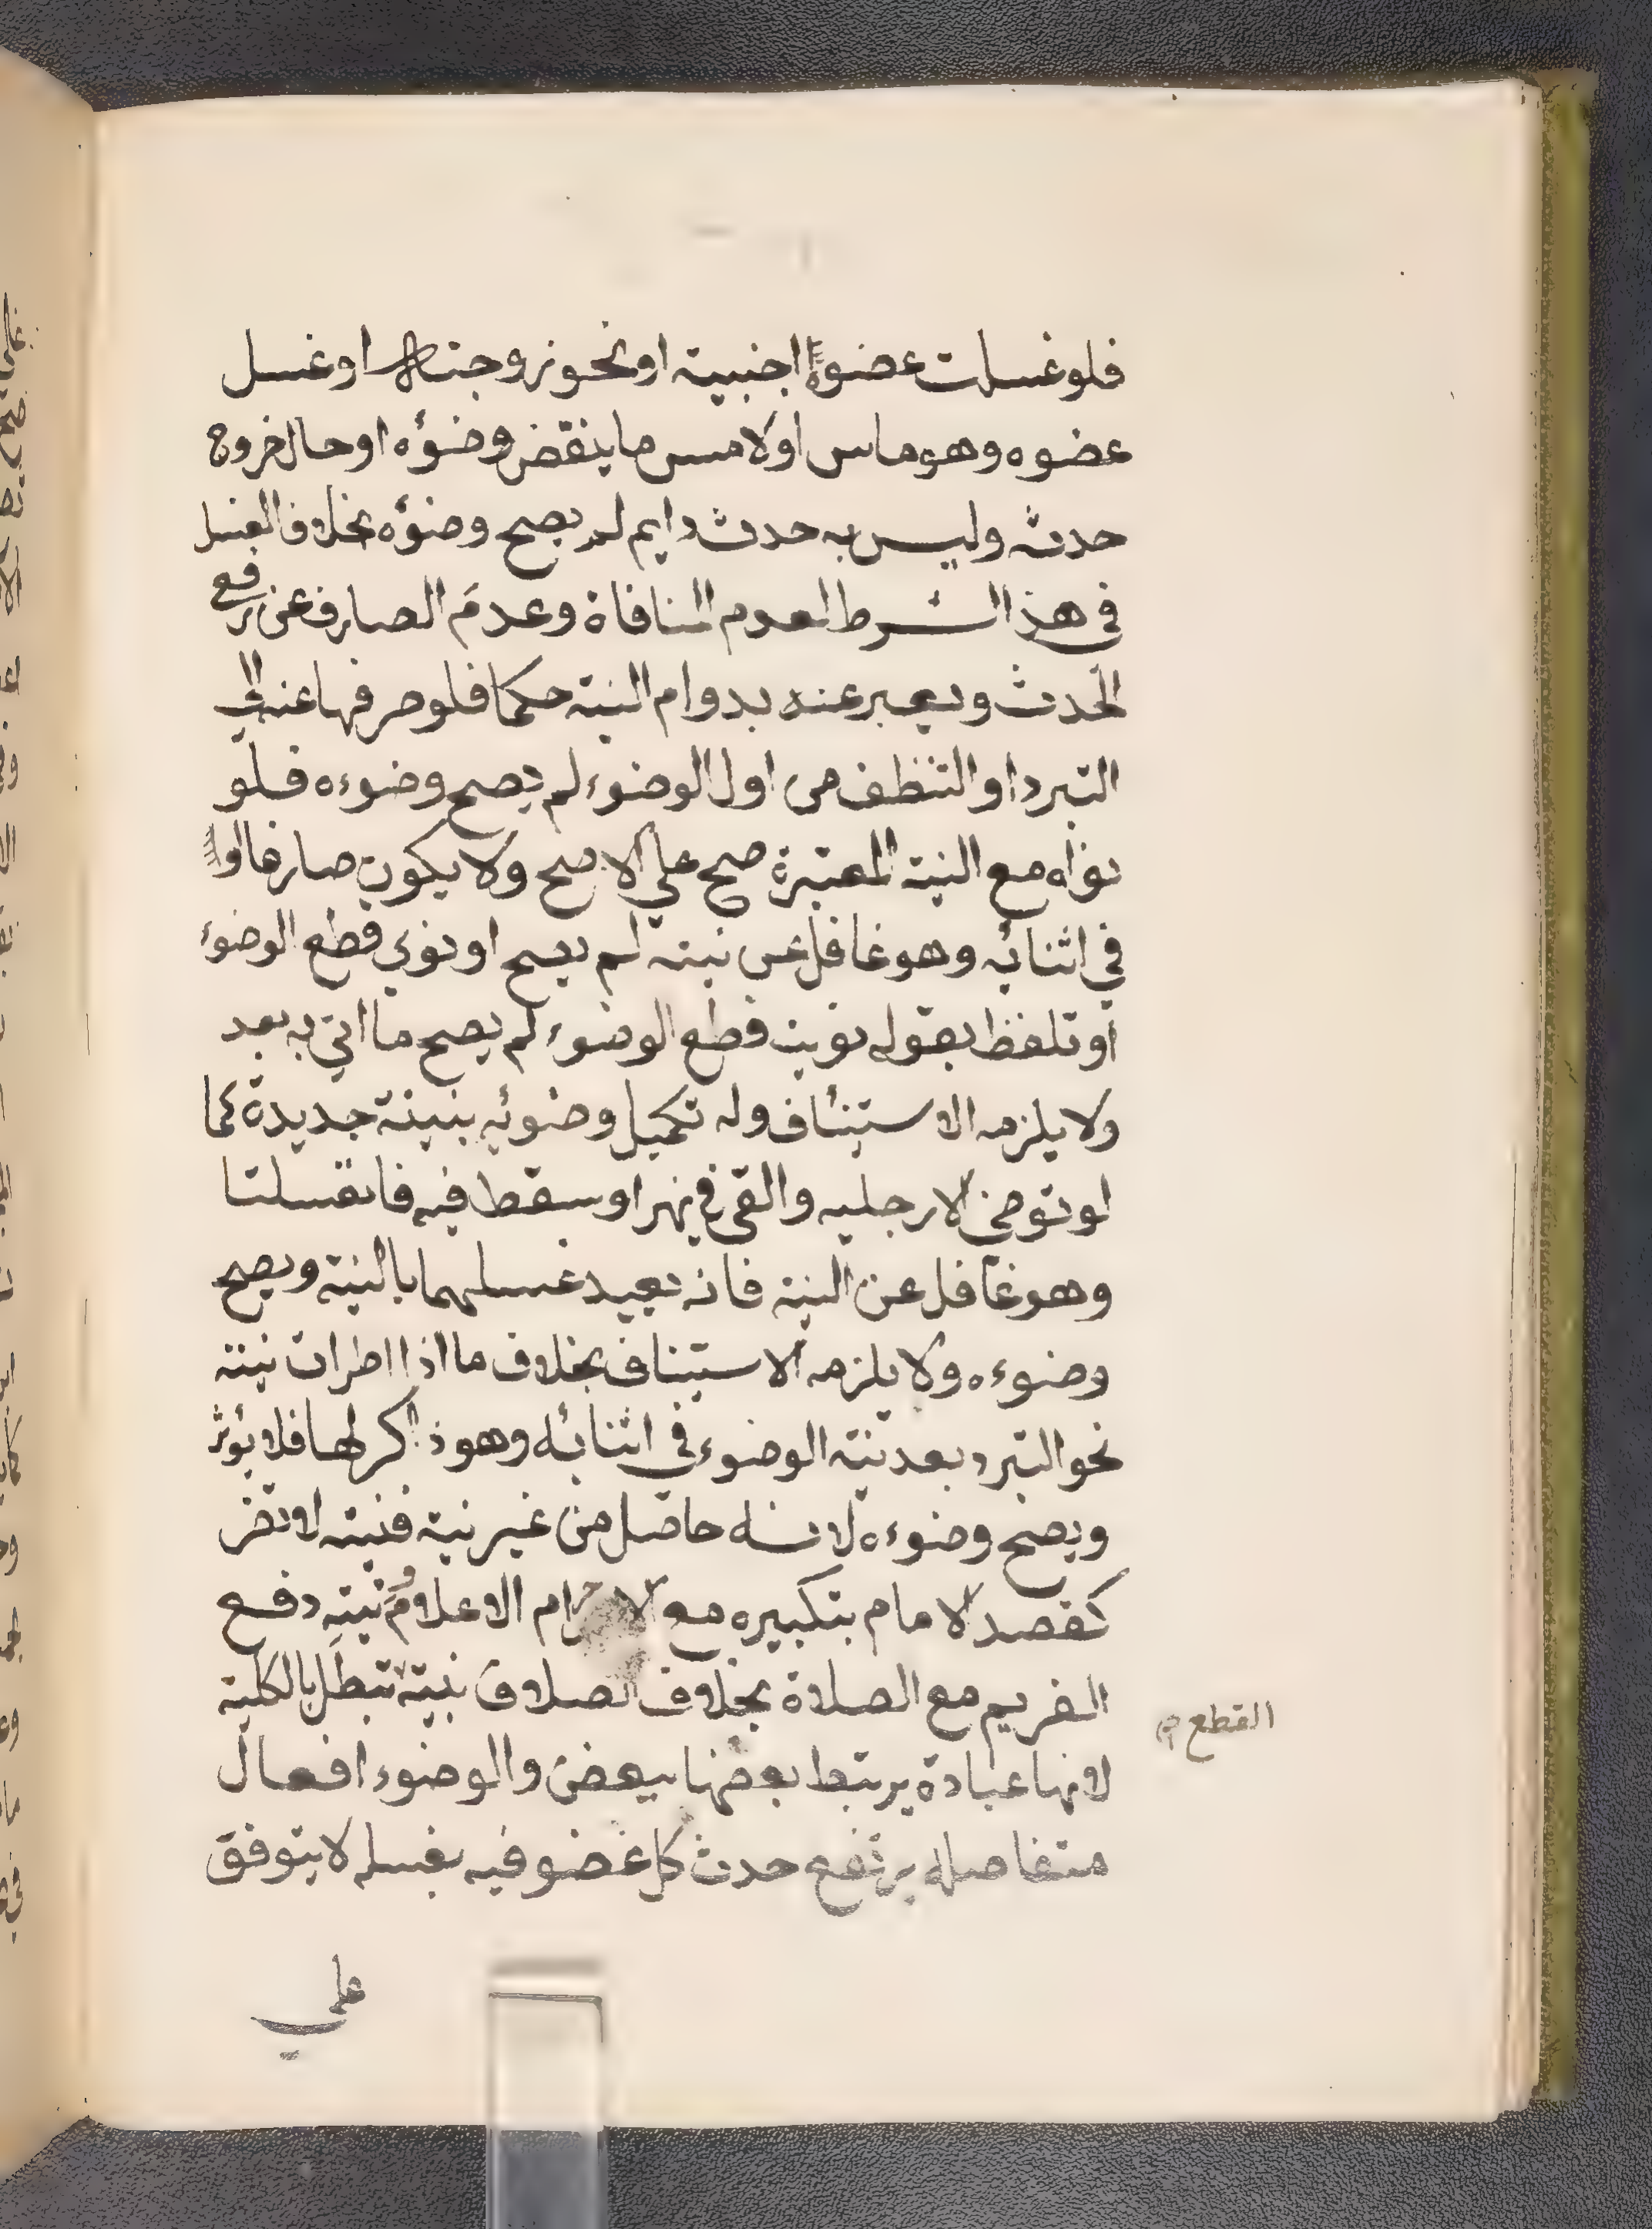 فلو غسلت عضوه اجنبية او نحو زوجته او غسل
عضوه وهو ماس او لامس ما ينقض وضوٴه او حال خروج
حدثه وليس به حدث دايم لم يصح وضوٴه بخلاف الغسل
في هذا الشرط لعدم المنافاة وعدم الصارف عن رفع
الحدث ويعبر عنه بدوام النية حكما فلو صرفها عنه الي
التبرد او التنظف من اول الوضوء لم يصح وضوءه فلو
نواه مع النية المعتبرة صح علي الاصح ولا يكون صارفا او
في اثنائه وهو غافل عن نيته لم يصح او نوي قطع الوضوء
او تلفظ بقوله نويت قطع الوضوء لم يصح ما اتي به بعد
ولا يلزمه الاستئناف وله تكميل وضوئه بنية جديدة كما
لو توضي الا رجليه والقي في نهر او سقط فيه فانغسلتا
وهو غافل عن النية فانه يعيد غسلهما بالنية ويصح
وضوءه ولا يلزمه الاستيناف بخلاف ما اذا اطرات نيته
نحو التبرد بعد نية الوضوء في اثنائه وهو ذاكر لها فلا يؤثر
ويصح وضوءه لانه حاصل من غير نية فنيته لا تضر
كقصد الامام بتكبيره مع الاحرام الاعلام ونيته دفع
الغريم مع الصلاة بخلاف الصلاة بنية تبطل بالكلية
القطع
لانها عبادة يرتبط بعضها ببعض والوضوء افعال
متفاصله يرتفع حدث كل عضو فيه بغسله لا يتوقف
علي